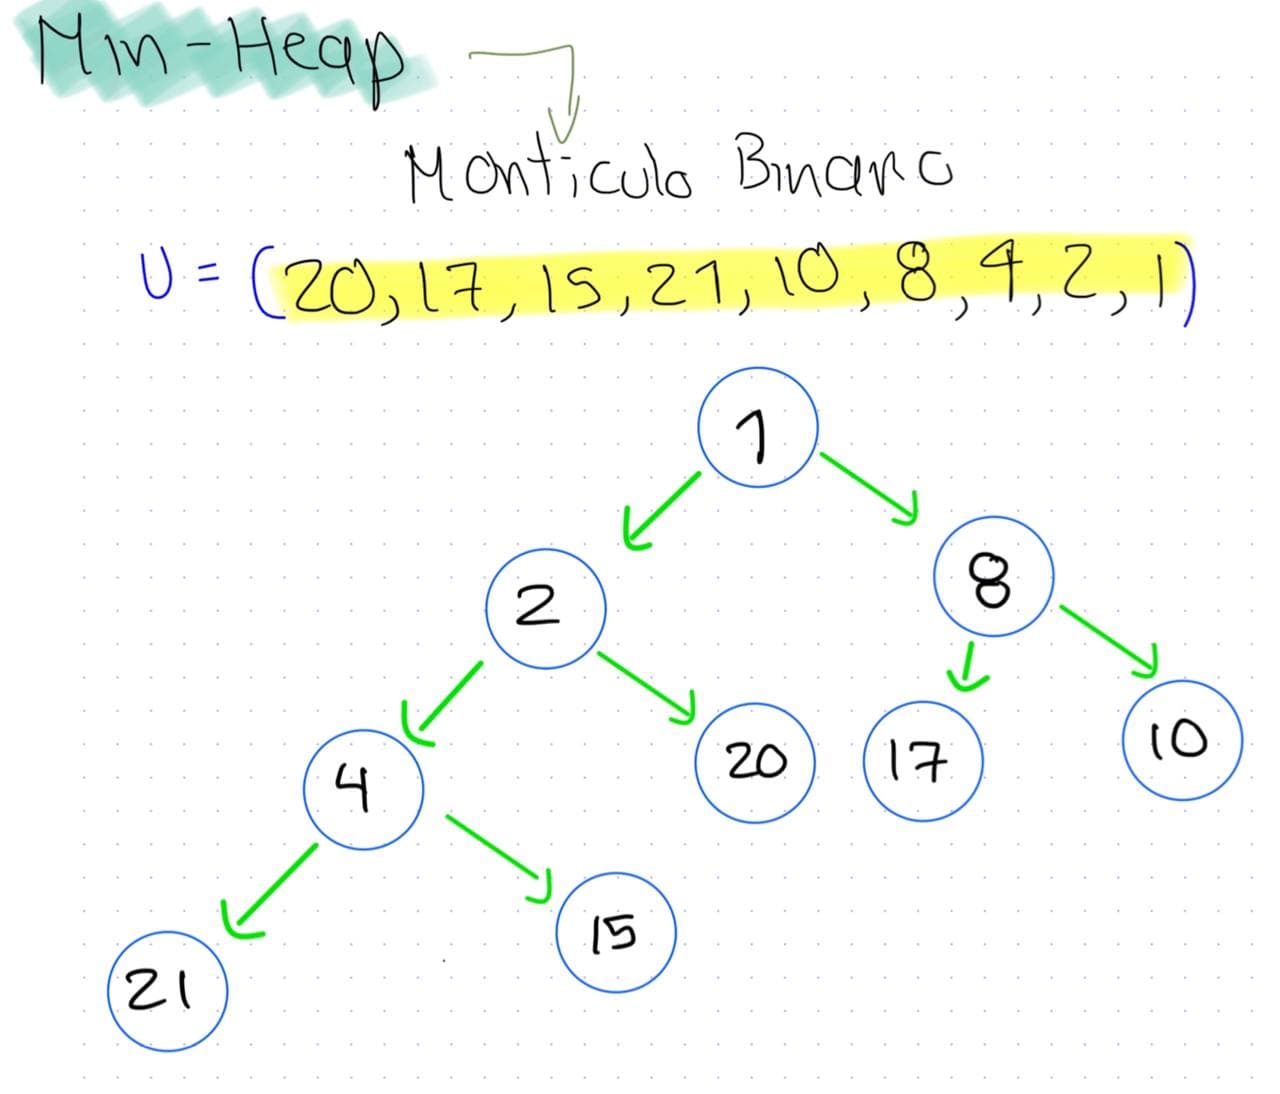 Min-Heap
Monticulo Binario
U = (20, 17, 15, 21, 10, 8, 4, 2, 1)
1
2 8
4 20 17 10
21 15